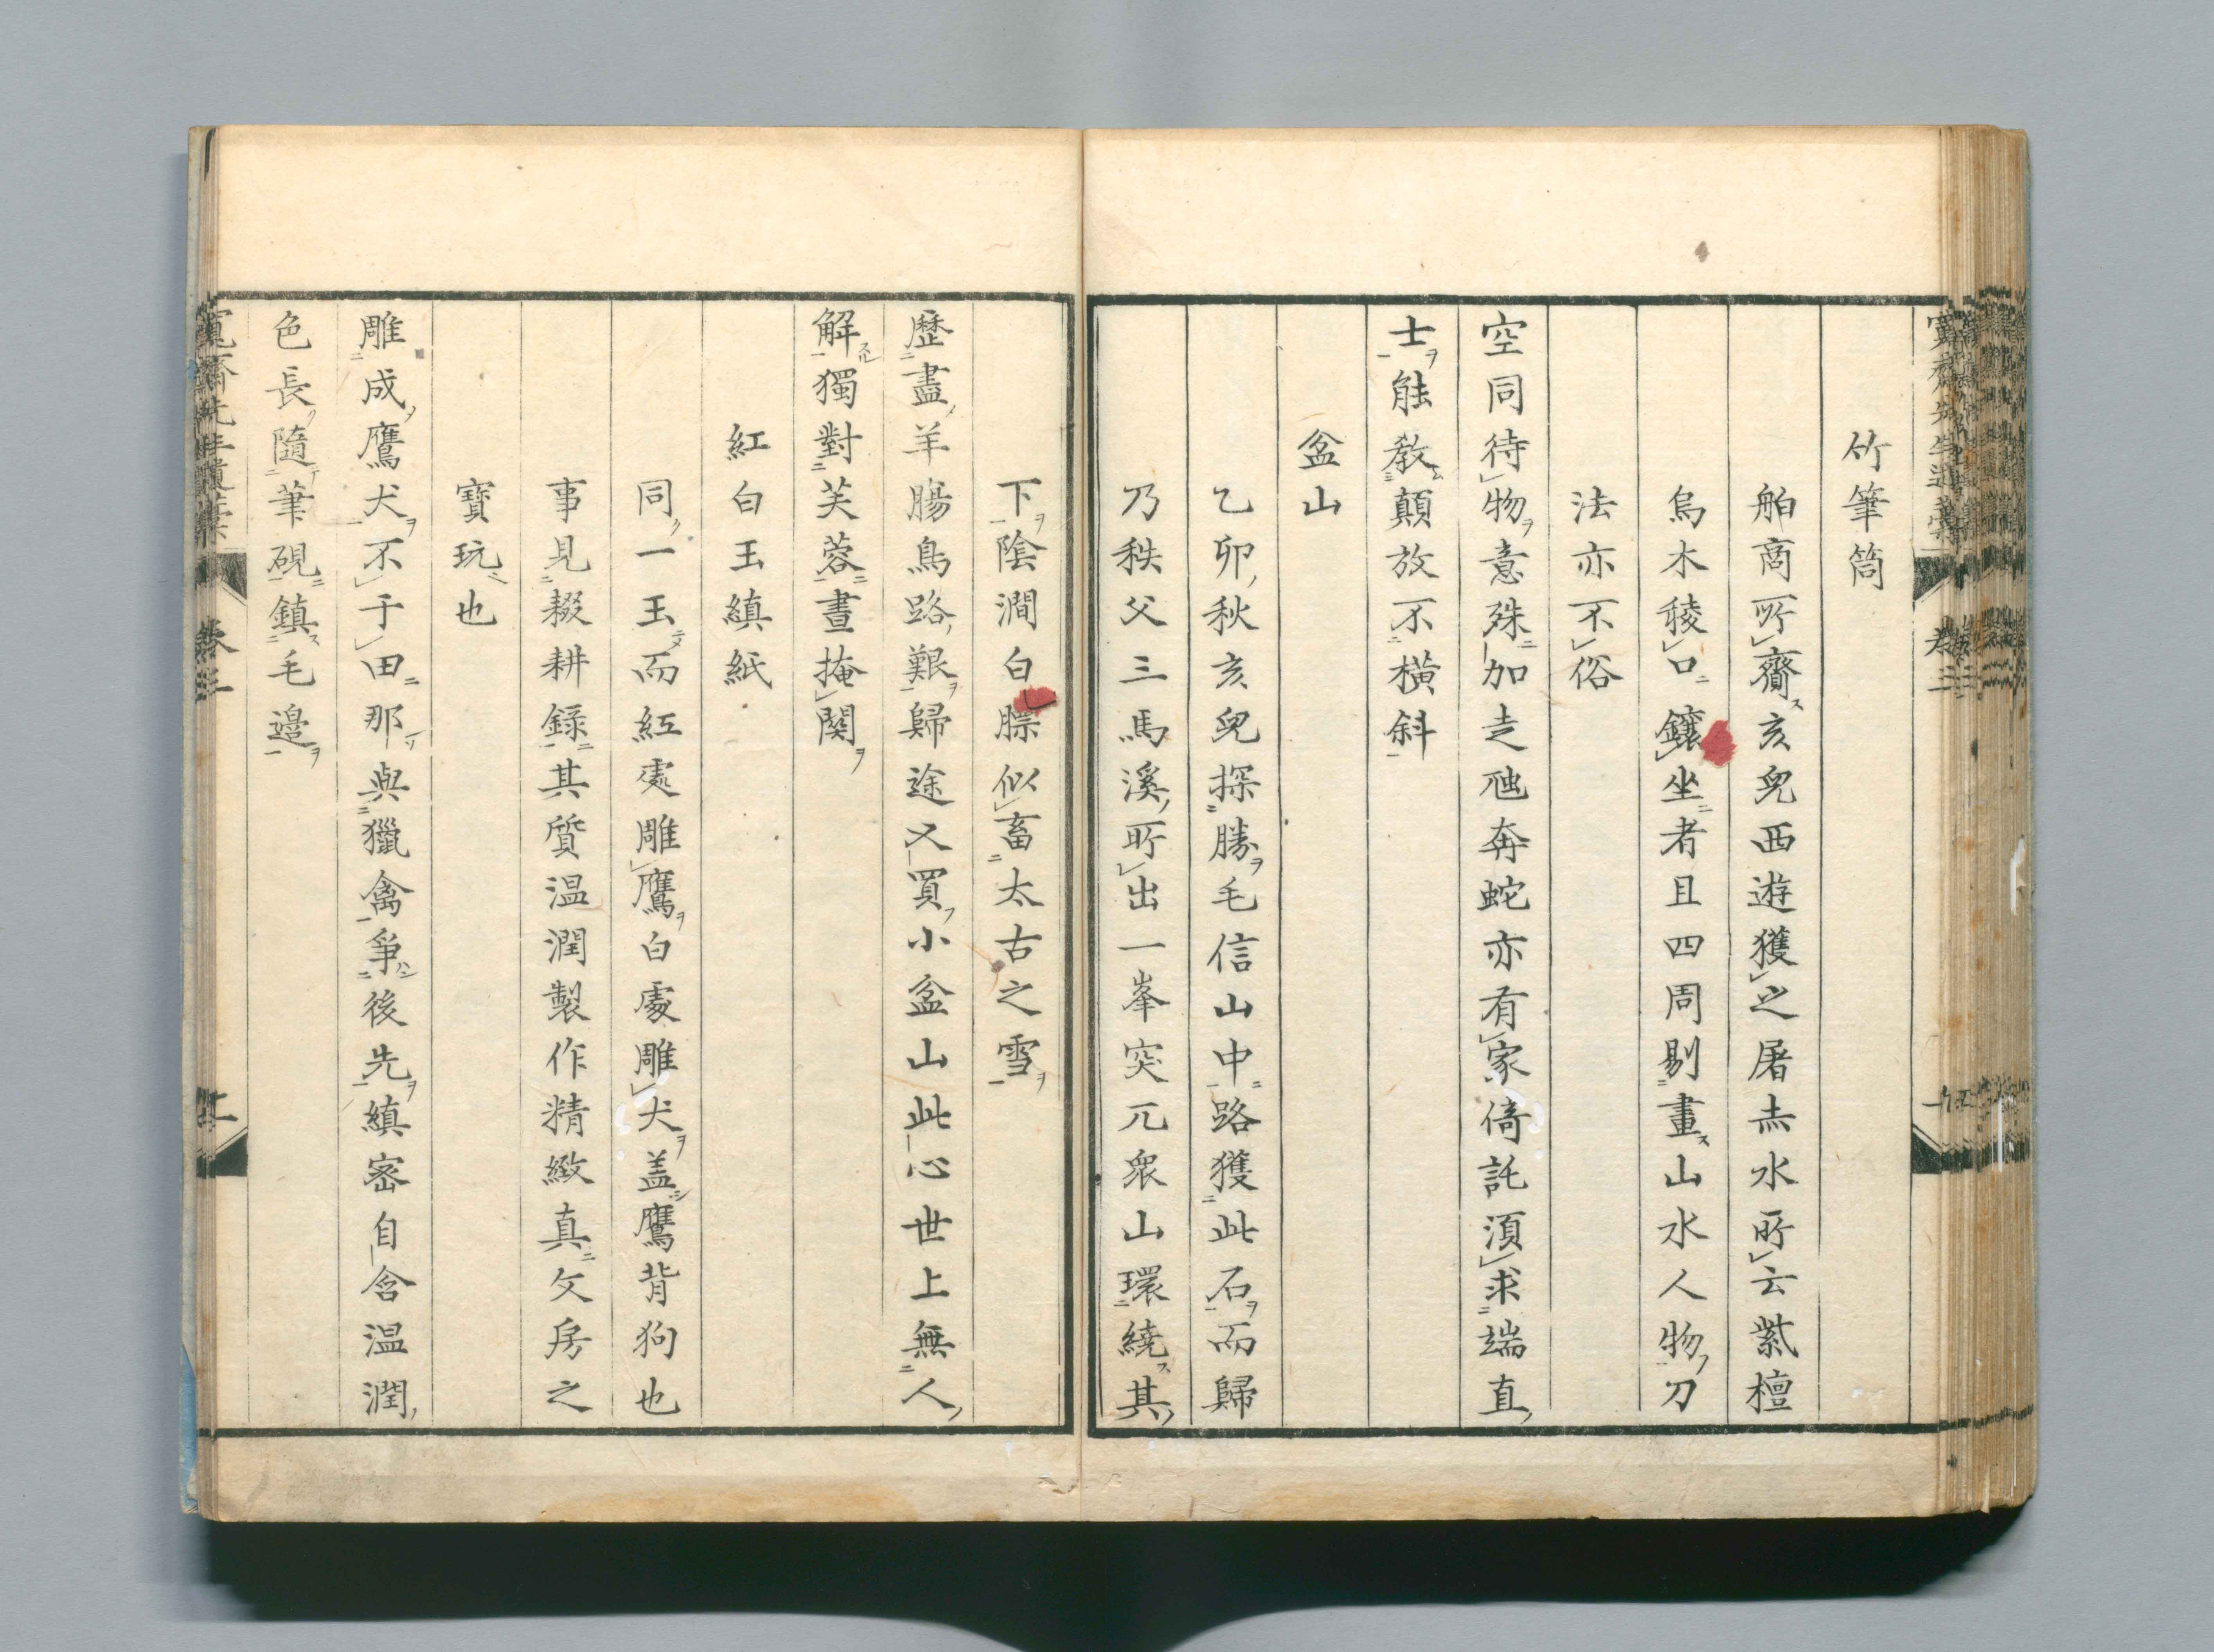 竹筆筒
舶商所齎亥皃西遊獲之屠赤水所云紫檀
烏木稜口鑲坐者且四周剔畫山水人物刀
法亦不俗
空同待物意殊加走虺奔蛇亦有家倚託湏求端直
士能教顛放不橫斜
盆山
乙卯秋亥皃探勝毛信山中路獲此石而歸
乃秩父三馬溪所出一峯突兀衆山環繞其
下陰澗白臕似畜太古之雪
歷盡羊腸鳥路艱歸途又買小盆山此心世上無人
解獨對芙蓉晝掩関
紅白玉縝紙
同一玉而紅處雕鷹白處雕犬盖鷹背狗也
事見輟耕録其質温潤製作精緻真文房之
寶玩也
雕成鷹犬不于田那與獵禽爭後先縝密自含温潤
色長隨筆硯鎮毛邊
卷三